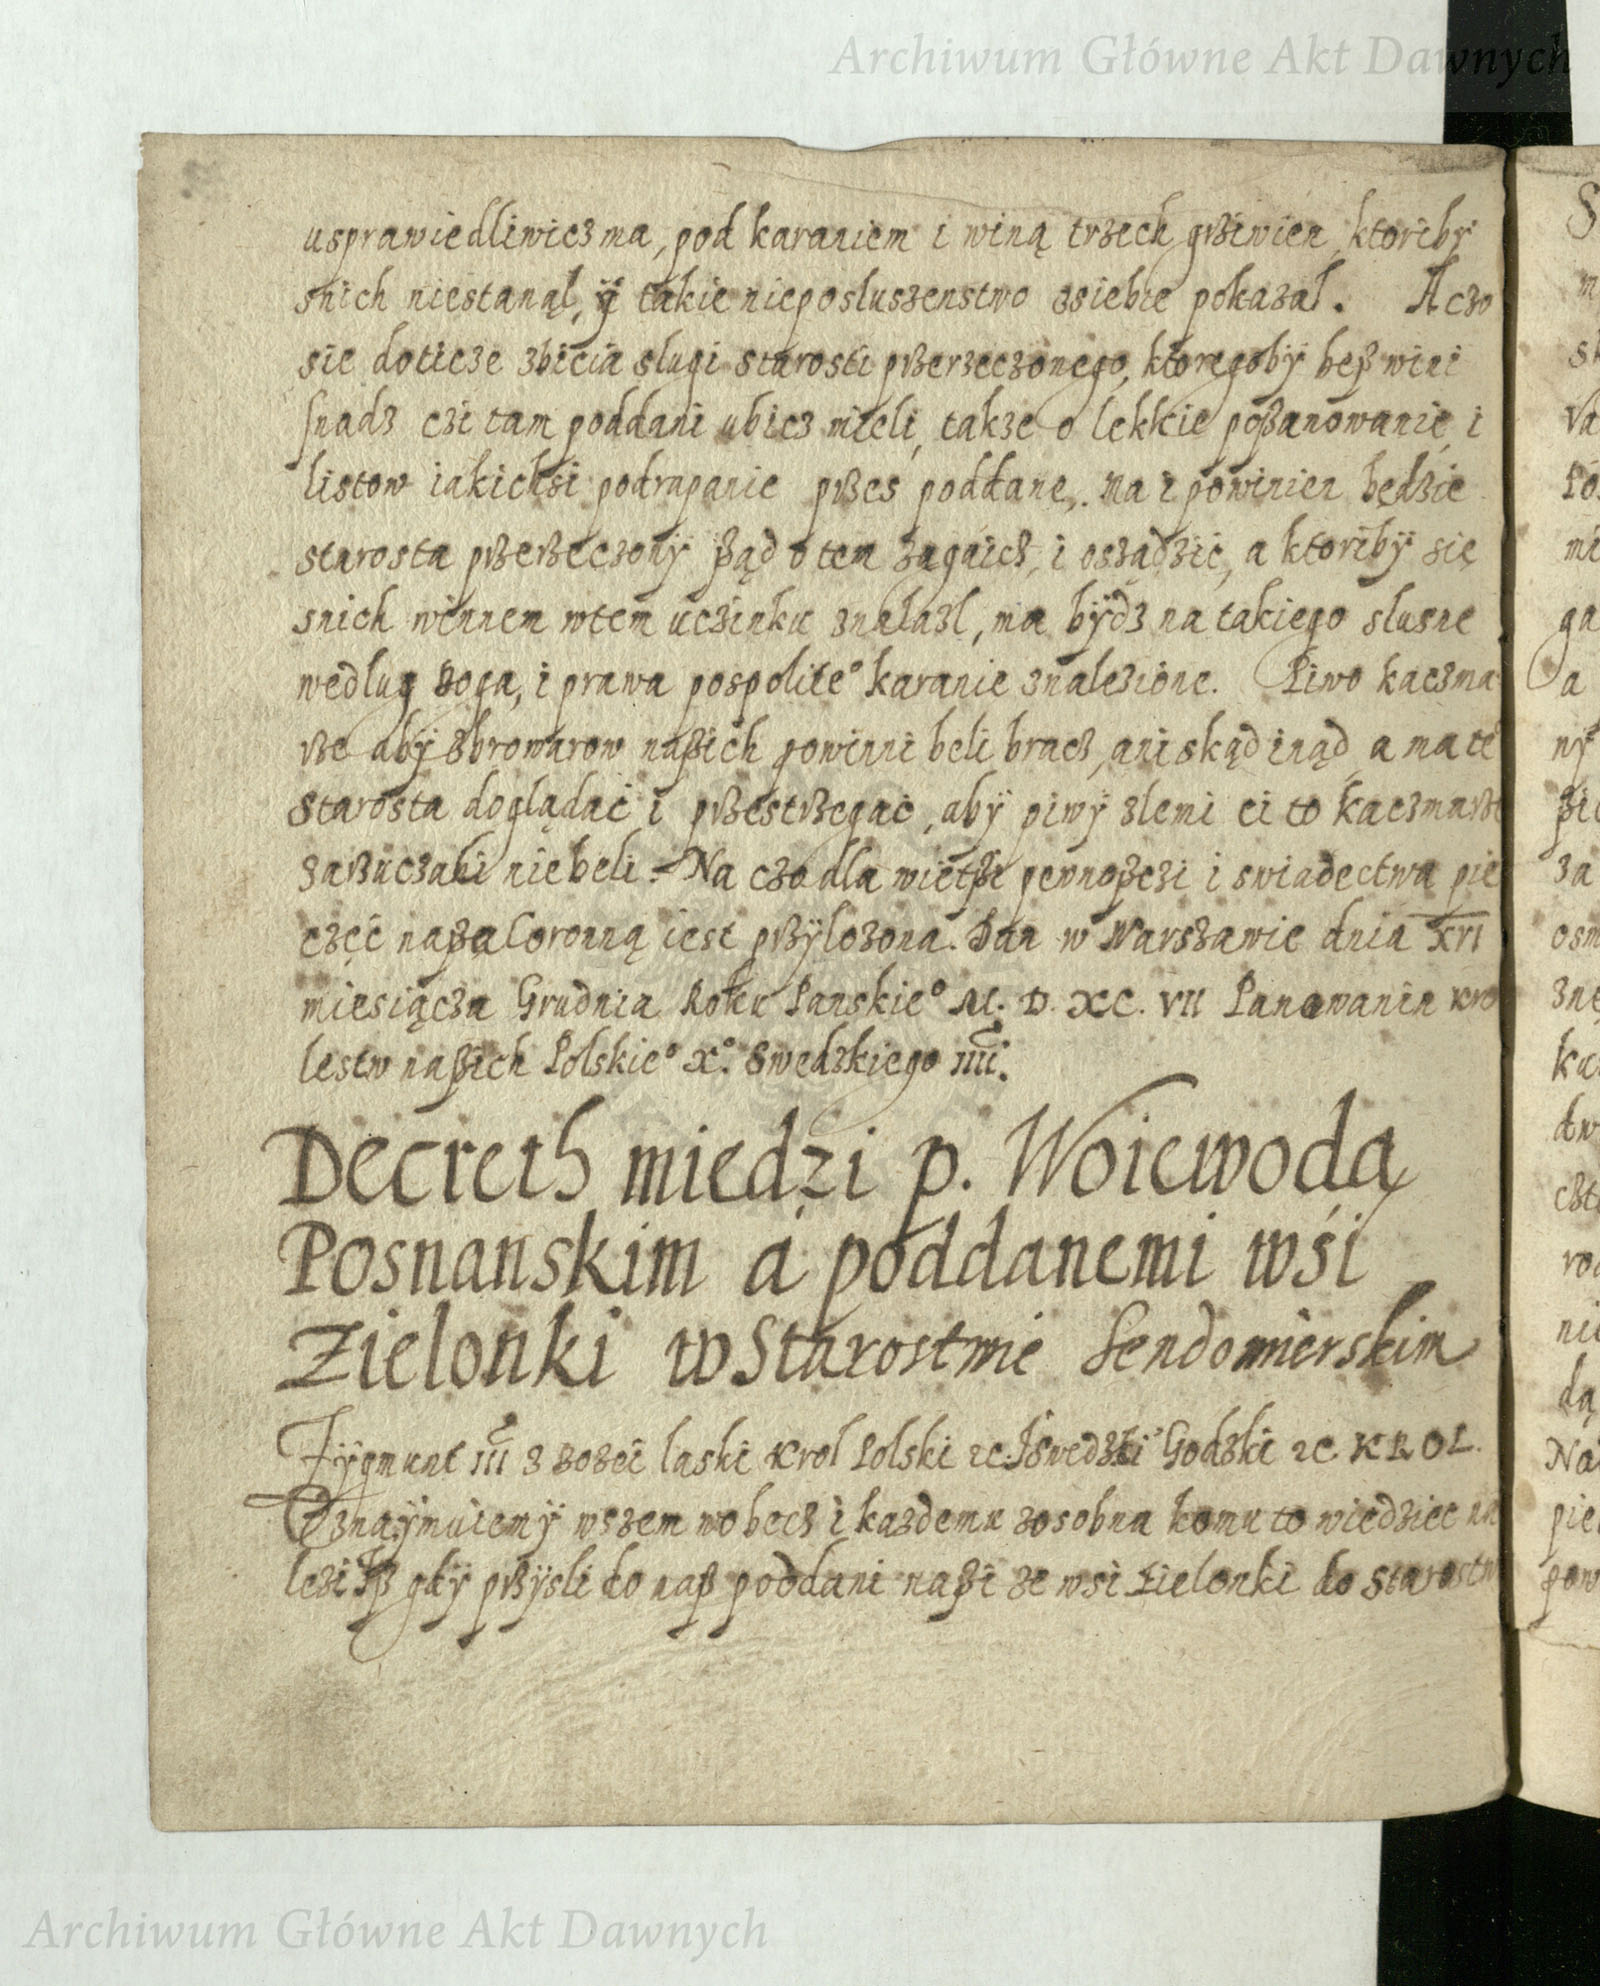 Archiwum Główne Akt Dawnych
usprawiedliwicz ma, pod karaniem i winą trzech grziwien, ktoriby
snich niestanąl, ÿ takie nieposluszenstwo zsiebie pokazal. A czo
sie doticze zbicia slugi starosti przerzeczonego, ktoregobÿ beß wini
snadz czi tam poddani ubicz mieli, takze o lekkie poßanowanie, i
listow iakichsi podrapanie przes poddane, ma i powinien będzie
starosta przerzeczonÿ ßąd o tem zagaicz, i oszadzić, a ktoribÿ się
snich winnem wtem uczinku znalazl, ma bÿdz na takiego slusne
wedlug Boga, i prawa pospolite° karanie znalezione. Piwo kaczma
rze abÿ zbrowarow naßich powinni beli bracz, ani skąd inąd, a ma te°
Starosta doglądać i przestrzegać, abÿ piwÿ zlemi ci to kaczmarze
zarzuczani nie beli. Na czo dla wietßi pewnoßczi i swiadectwa pie
częć naßa Coronną iest przÿlozona. Dan w Warszawie dnia XVI
miesiącza Grudnia Roku Panskie° M. D. XC. VII Panowania kro
lestw naßich Polskie° X°. Swedzkiego IIII.
Decreth miedzi p. Woiewodą
Posnanskim a poddanemi wśi
Zielonki w Starostwie Sendomierskim
Zÿgmunt III z Bozei laski Krol Polski etc. Szwedzki Godzki etc. KROL.
Oznaÿmuiemÿ wszem wobecz i kazdemu zosobna komu to wiedziec na
lezi Iß gdÿ przÿsli do naß poddani naßi ze wsi Zielonki do Starostw
Archiwum Główne Akt Dawnych